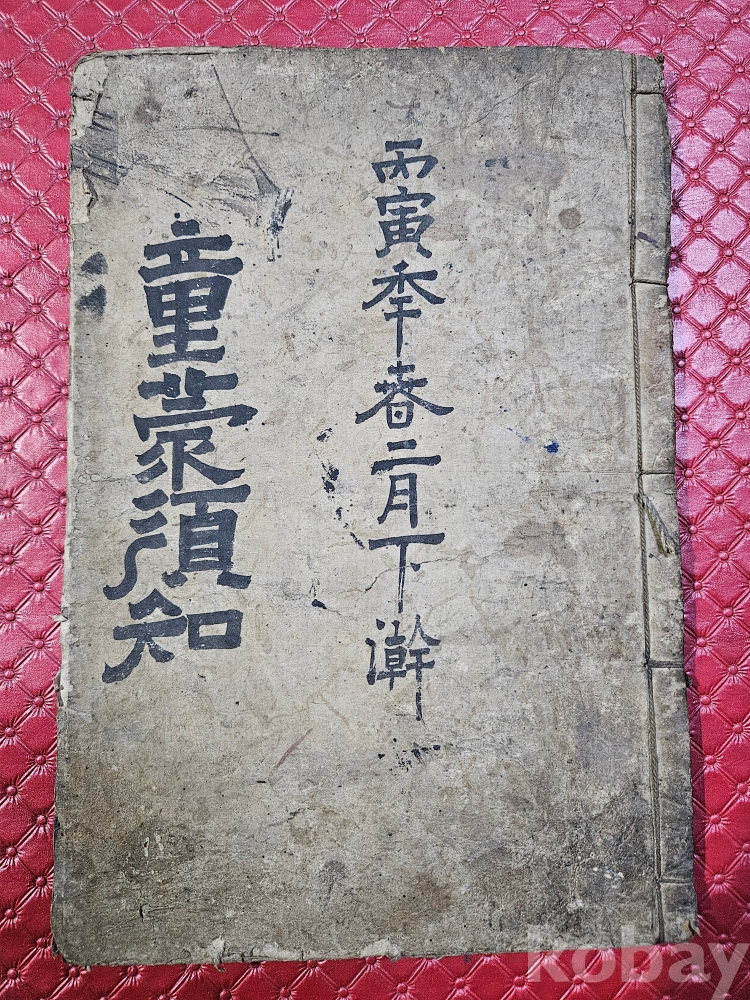 丙寅秊春二月下澣
童蒙須知
kobay